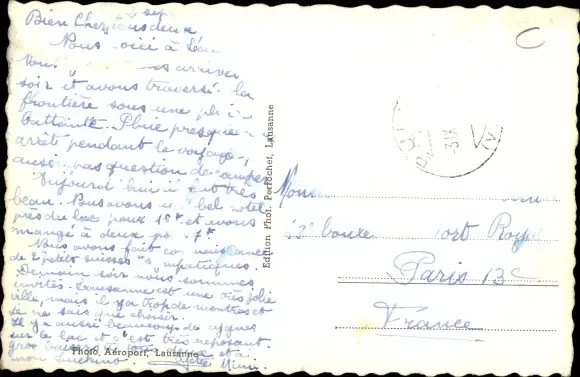 sep
Bien Chers tous deux
Nous voici à
arrivés
soir et avons traversé la
frontière sous une pluie
battante. Pluie presque
arrêt pendant le voyage,
aussi pas question de camper
Aujourd'hui il fait très
beau. Nous avons un bel hotel
près du lac pour 15F et avons
mangé à deux pour 7F.
Nous avons fait connaissance
de 2 petits suisses sympatiques.
Demain soir nous sommes
invités. Lausanne est une très jolie
ville, mais il y a trop de montres et
je ne sais que choisir.
Il y a aussi beaucoup de cygnes
sur le lac et c'est très reposant.
gros baisers à tous deux et à
mon
Mimi.
Photo. Aéroport, Lausanne
Edition Phot. Perrochet, Lausanne
C
boulev Port Royal
Paris 13e
France